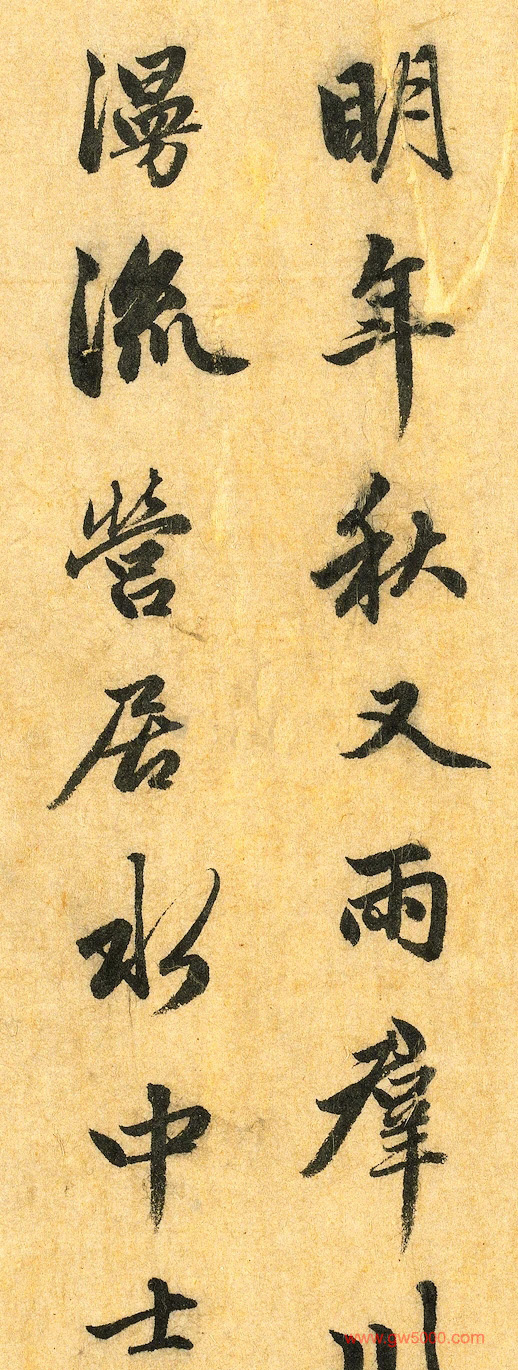 明年秋又雨羣川
漫流營居水中士
www.gw5000.com